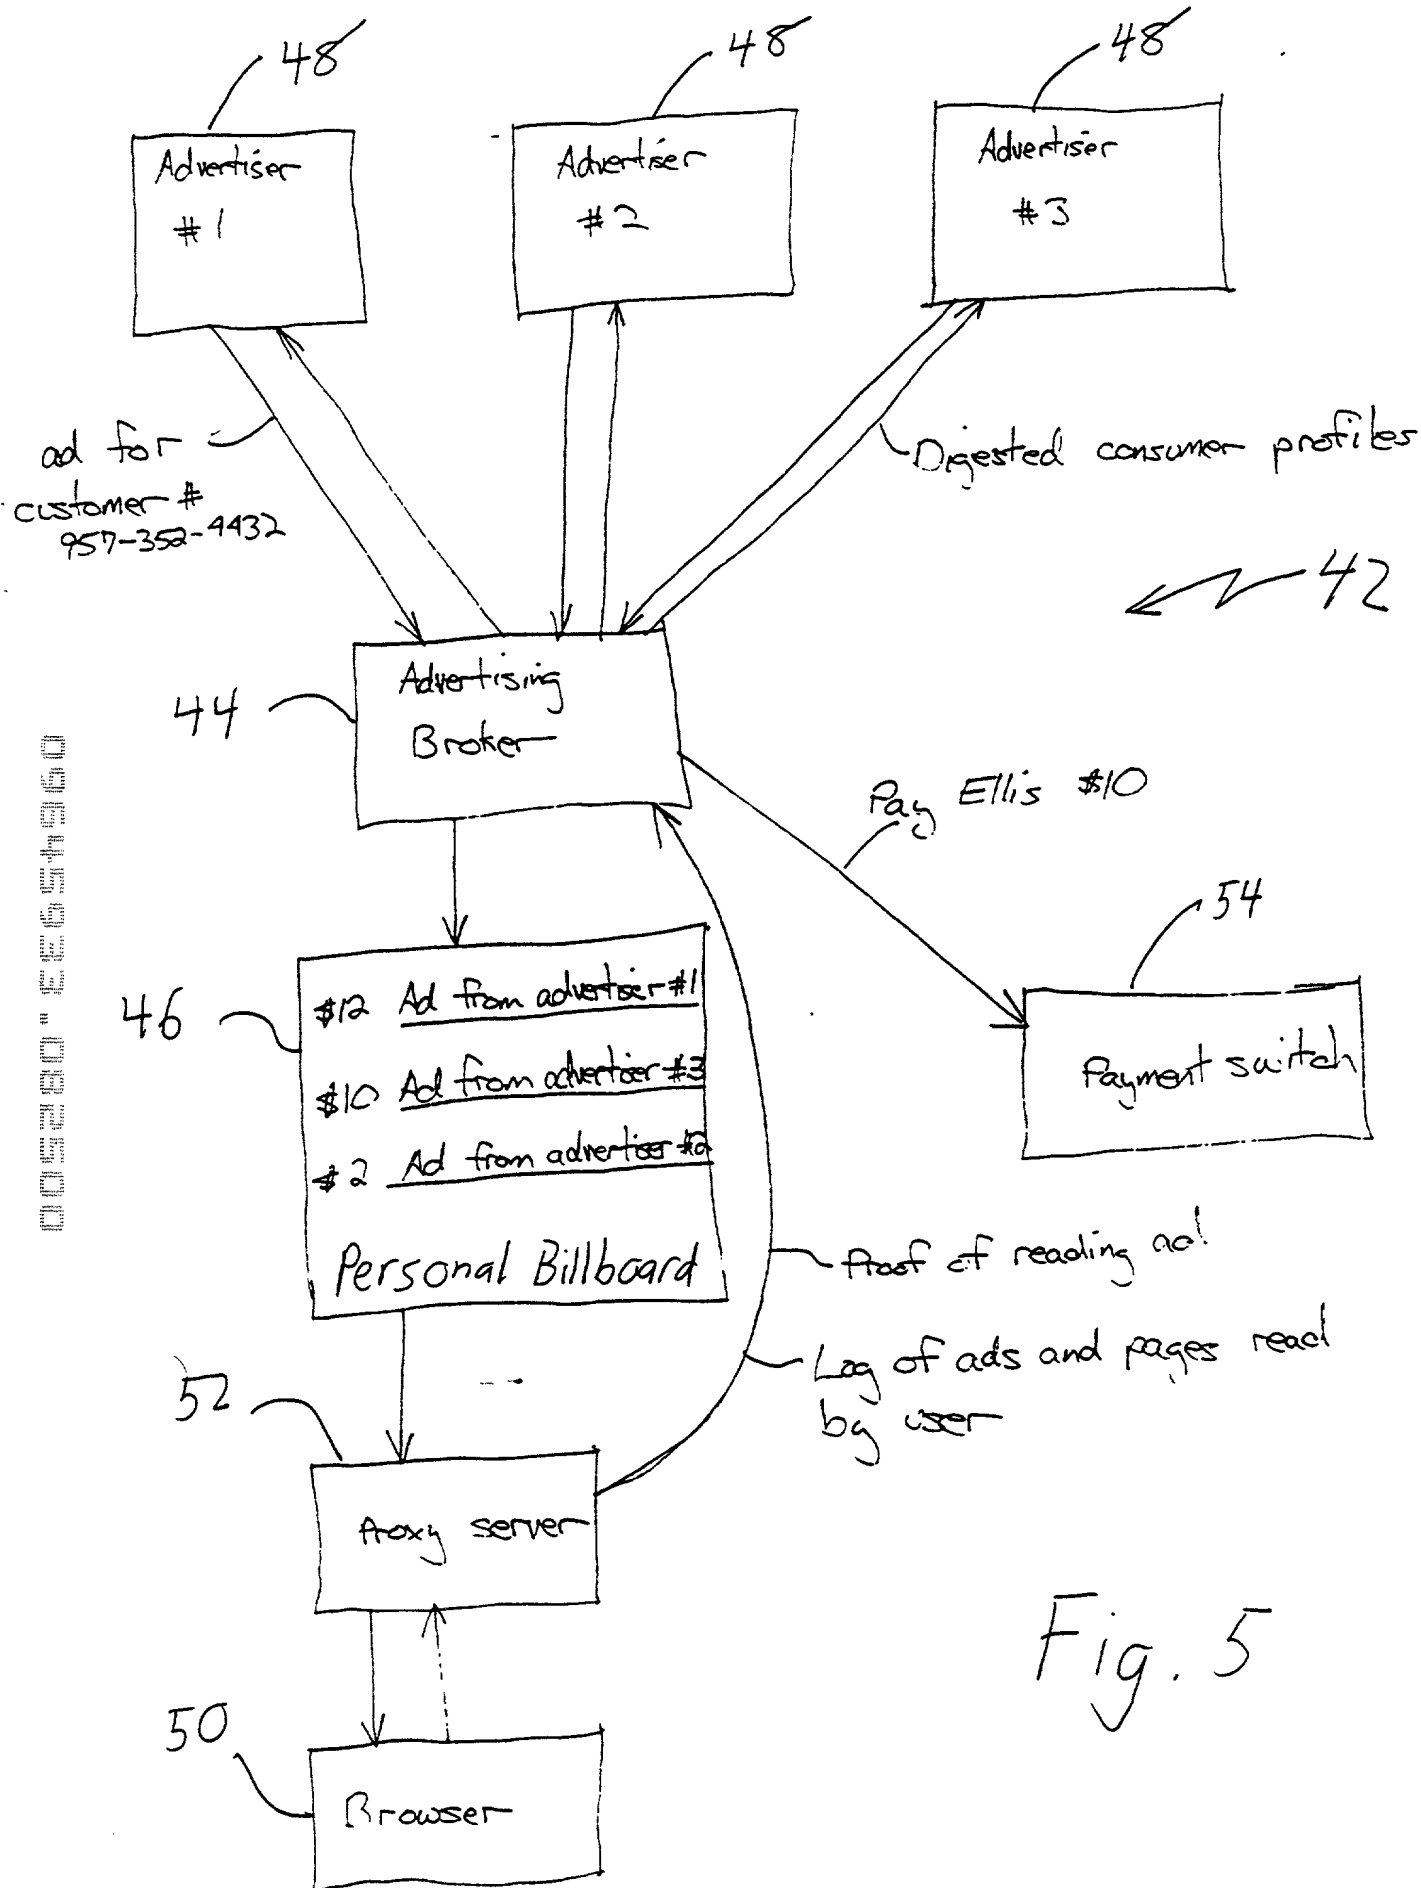 48
48
48
Advertiser
#1
Advertiser
#2
Advertiser
#3
ad for
customer #
957-352-4432
Digested consumer profiles
42
44
Advertising
Broker
Pay Ellis $10
54
Payment switch
46
$12 Ad from advertiser #1
$10 Ad from advertiser #3
$2 Ad from advertiser #2
Personal Billboard
Proof of reading ad
Log of ads and pages read
by user
52
Proxy server
50
Browser
Fig. 5
09645933.082500